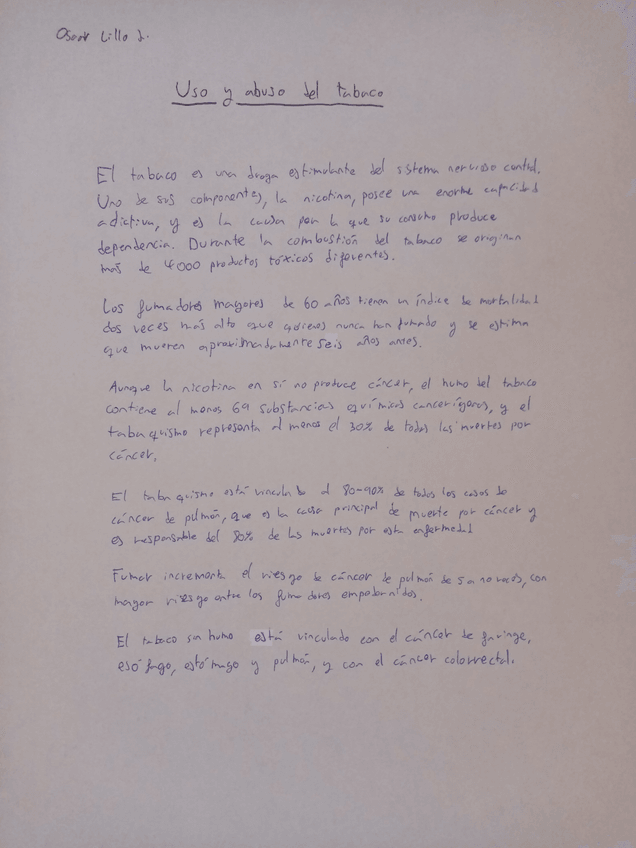 Oscar Lillo J.
Uso y abuso del tabaco
El tabaco es una droga estimulante del sistema nervioso central.
Uno de sus componentes, la nicotina, posee una enorme capacidad
adictiva, y es la causa por la que su consumo produce
dependencia. Durante la combustión del tabaco se originan
más de 4000 productos tóxicos diferentes.
Los fumadores mayores de 60 años tienen un índice de mortalidad
dos veces más alto que quienes nunca han fumado y se estima
que mueren aproximadamente seis años antes.
Aunque la nicotina en sí no produce cáncer, el humo del tabaco
contiene al menos 69 substancias químicas cancerígenas, y el
tabaquismo representa al menos el 30% de todas las muertes por
cáncer.
El tabaquismo está vinculado al 80-90% de todos los casos de
cáncer de pulmón, que es la causa principal de muerte por cáncer y
es responsable del 80% de las muertes por esta enfermedad
Fumar incrementa el riesgo de cáncer de pulmón de 5 a 10 veces, con
mayor riesgo entre los fumadores empedernidos.
El tabaco sin humo está vinculado con el cáncer de faringe,
esófago, estómago y pulmón, y con el cáncer colorrectal.